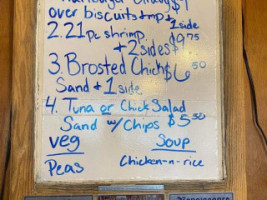 Hamburger Gravy $9
over biscuits + mp's 1 side
2. 21 pc shrimp
+ 2 sides $9.75
3. Brosted Chick $6.50
Sand + 1 side
4. Tuna or Chick Salad
Sand w/ Chips $5.50
veg Soup
Peas Chicken-n-rice